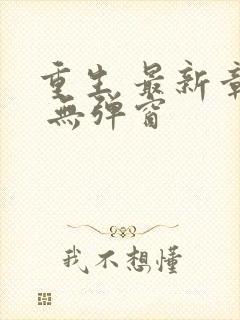 重生 最新章
無弹窗
我不想懂